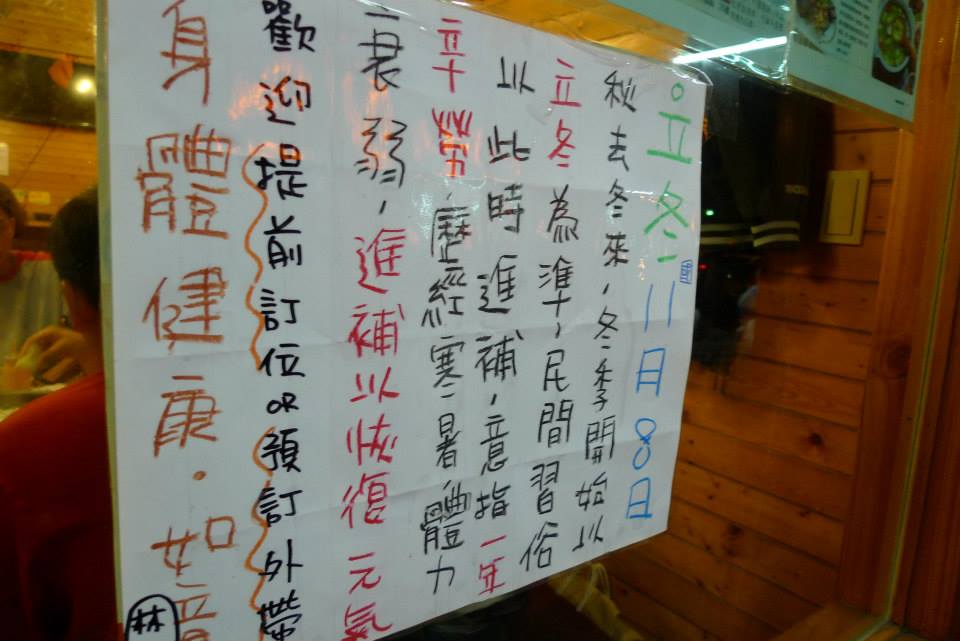 立冬 11月8日
秋去冬來,冬季開始以
立冬為準,民間習俗
以此時進補,意指一年
辛勞,歷經寒暑體力
衰弱,進補以恢復元氣
歡迎提前訂位OR預訂外帶
身體健康.如
林